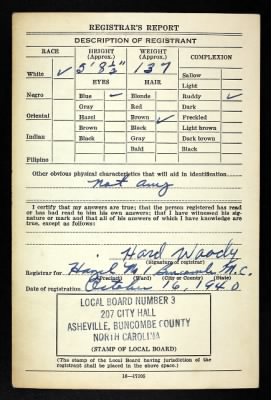 REGISTRAR'S REPORT
DESCRIPTION OF REGISTRANT
RACE HEIGHT (Approx.) WEIGHT (Approx.) COMPLEXION
White ✓ 5' 8½" 137 Sallow
EYES HAIR Light
Negro Blue ✓ Blonde Ruddy ✓
Gray Red Dark
Oriental Hazel Brown ✓ Freckled
Brown Black Light brown
Indian Black Gray Dark brown
Bald Black
Filipino
Other obvious physical characteristics that will aid in identification
not any
I certify that my answers are true; that the person registered has read
or has had read to him his own answers; that I have witnessed his sig-
nature or mark and that all of his answers of which I have knowledge are
true, except as follows:
Hard Woody
(Signature of registrar)
Registrar for Hazel No 1 Buncombe N.C.
(Precinct) (Ward) (City or County) (State)
Date of registration October 16, 1940
LOCAL BOARD NUMBER 3
207 CITY HALL
ASHEVILLE, BUNCOMBE COUNTY
NORTH CAROLINA
(STAMP OF LOCAL BOARD)
(The stamp of the Local Board having jurisdiction of the
registrant shall be placed in the above space.)